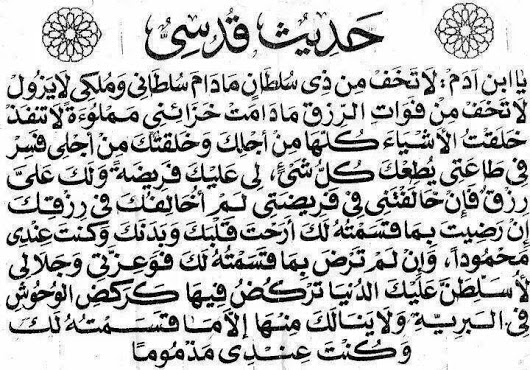 حَدِيث قُدسِيٌّ
يَا ابنَ آدَم: لَا تَخَف مِن ذِى سُلطَانٍ مَا دَامَ سُلطَانِي وَمُلكِي لَا يَزُول
لَا تَخَف مِن فَوَات الرِّزق مَا دَامَت خَزَائِني مَملُوءَةً لَا تَنفَذ
خَلَقتُ الأَشيَاءَ كُلّهَا مِن أَجلِكَ وَخَلَقتُكَ مِن أَجلِى فَسِر
فِى طَاعَتِى يُطِعكَ كُلُّ شَئٍ، لِى عَلَيكَ فَرِيضَةٌ وَلَكَ عَلَىَّ
رِزقٌ فَإِن خَالَفتَنِى فِى فَرِيضَتِى لَم أُخَالِفكَ فِى رِزقِكَ
إِن رَضِيتَ بِمَا قَسَمتُهُ لَكَ أَرَحتُ قَلبَكَ وَبَدَنَكَ وَكُنتَ عِندِى
مَحمُوداً، وَإِن لَم تَرضَ بِمَا قَسَمتُهُ لَكَ فَوَعِزَّتِى وَجَلَالِى
لَأُسَلِّطَنَّ عَلَيكَ الدُّنيَا تَركُضُ فِيهَا كَرَكضِ الوُحُوشِ
فِى البَرِيَّةِ وَلَا يَنَالُكَ مِنهَا إِلَّا مَا قَسَمتُهُ لَكَ
وَكُنتَ عِندِى مَذمُومًا